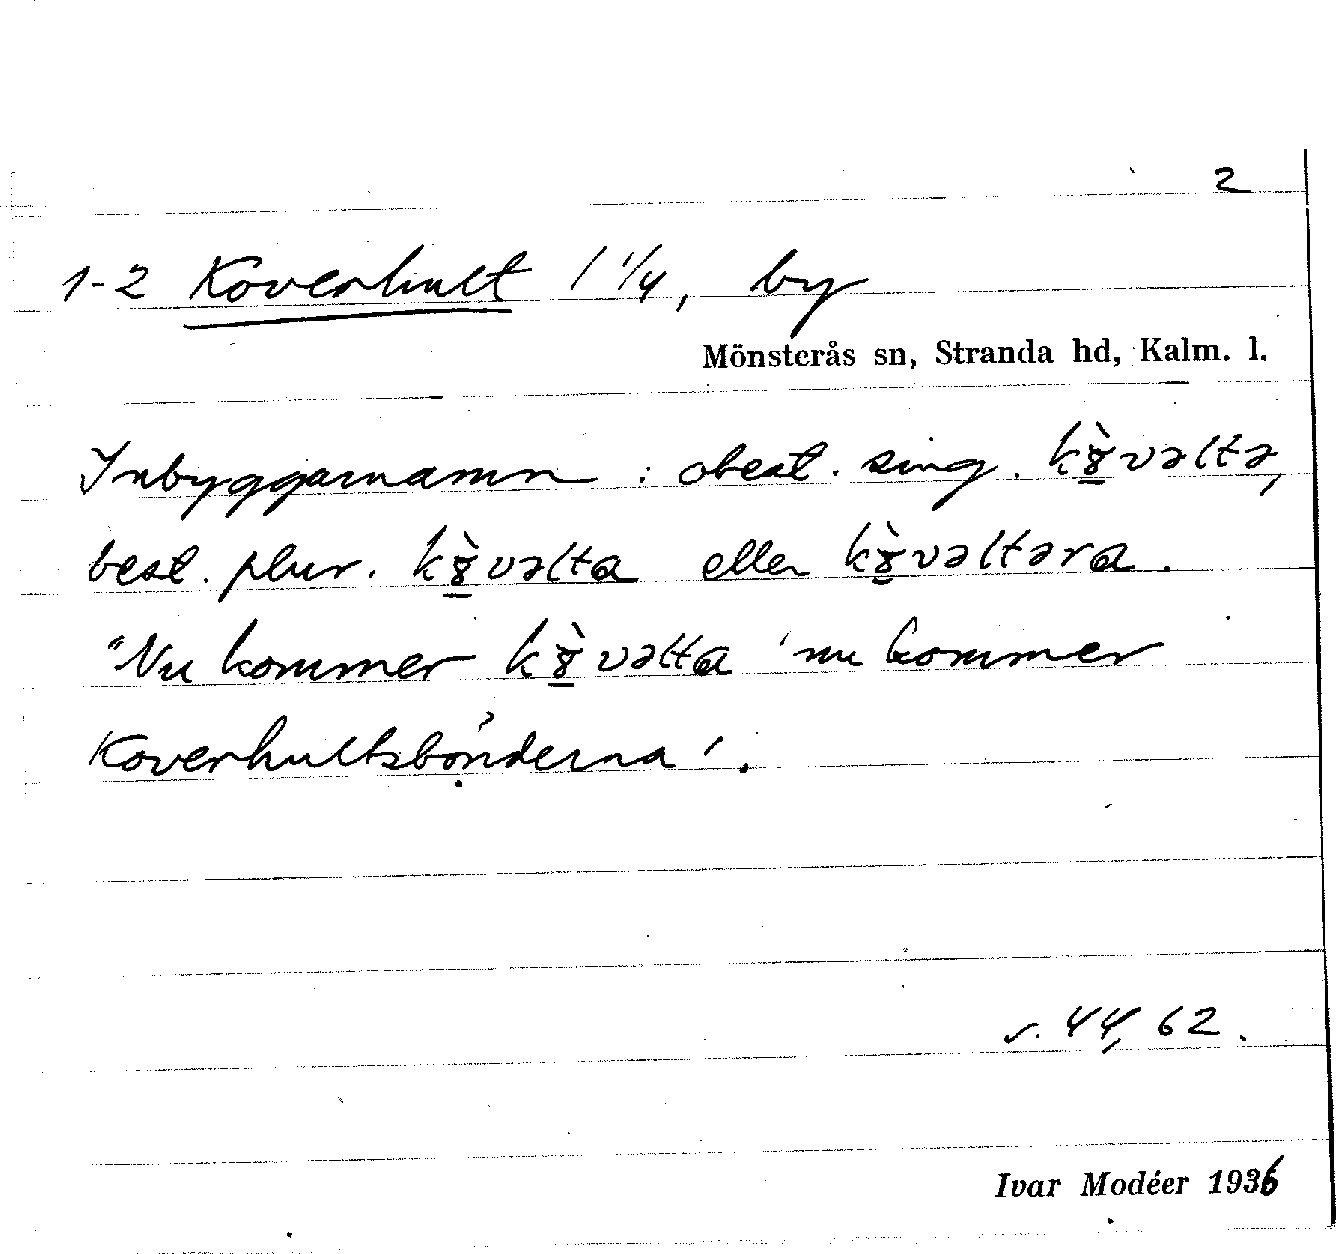 2
1-2 Koverhult 1 1/4, by
Mönsterås sn, Stranda hd, Kalm. l.
Inbyggarnamn : obest. sing. kȣ̠̀vəltə,
best. plur. kȣ̠̀vəlta eller kȣ̠̀vəltəra.
"Nu kommer kȣ̠̀vəlta 'nu kommer
Koverhultsbönderna'.
s. 44, 62.
Ivar Modéer 1936